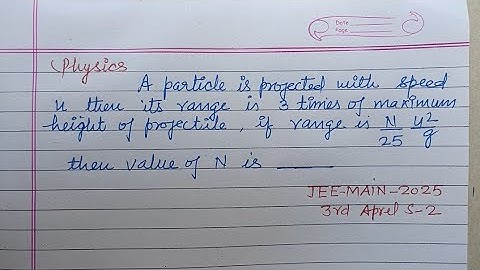 Date
Page
Physics
A particle is projected with speed
u then its range is 3 times of maximum
height of projectile, if range is N/25 u²/g
then value of N is ______
JEE-MAIN-2025
3rd April S-2